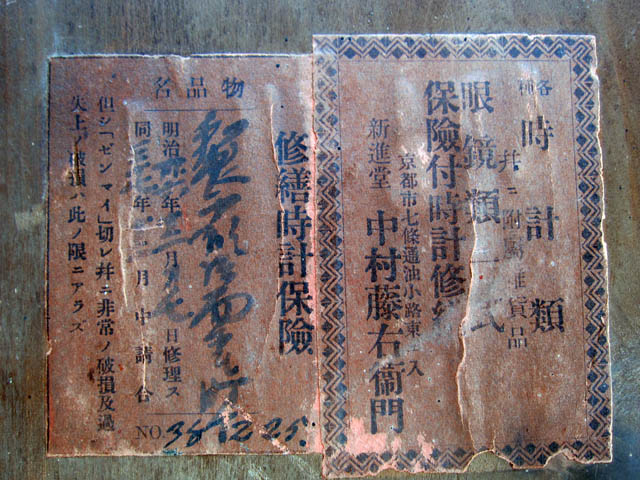 各種
時計類
幷ニ附屬雜貨品
眼鏡類一式
保險付時計修繕
京都市七條通油小路東入
新進堂
中村藤右衞門
修繕時計保險
物品名
明治 年 月 日修理ス
同 年 月中請合
但シ「ゼンマイ」切レ幷ニ非常ノ破損及過
失上ノ破損ハ此ノ限ニアラズ
NO. 38.12.25.